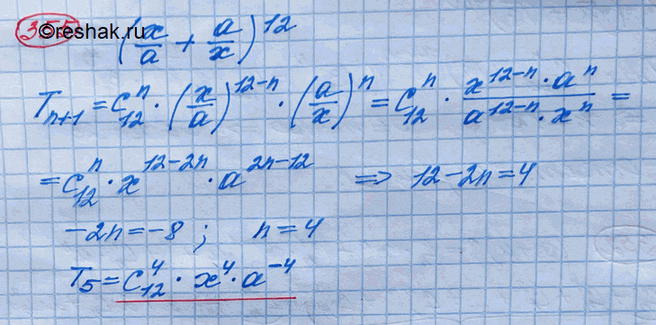 355 ©reshak.ru (x/a + a/x)^12
T_{n+1} = C_{12}^n · (x/a)^{12-n} · (a/x)^n = C_{12}^n · (x^{12-n} · a^n)/(a^{12-n} · x^n) =
= C_{12}^n · x^{12-2n} · a^{2n-12} ⇒ 12-2n=4
-2n=-8 ; n=4
T_5 = C_{12}^4 · x^4 · a^{-4}